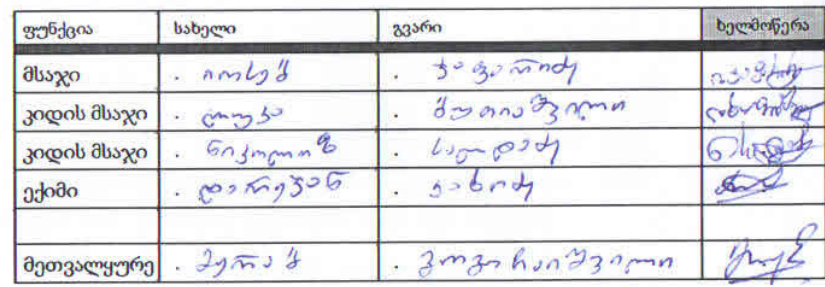 ფუნქცია სახელი გვარი ხელმოწერა
მსაჯი . იოსებ . ჯაფარიძე
კიდის მსაჯი . ლუკა . ბუთიაშვილი
კიდის მსაჯი . ნიკოლოზ . სალდაძე
ექიმი . დარეჯან . კახოძე
მეთვალყურე . მერაბ . გოგოჩაიშვილი